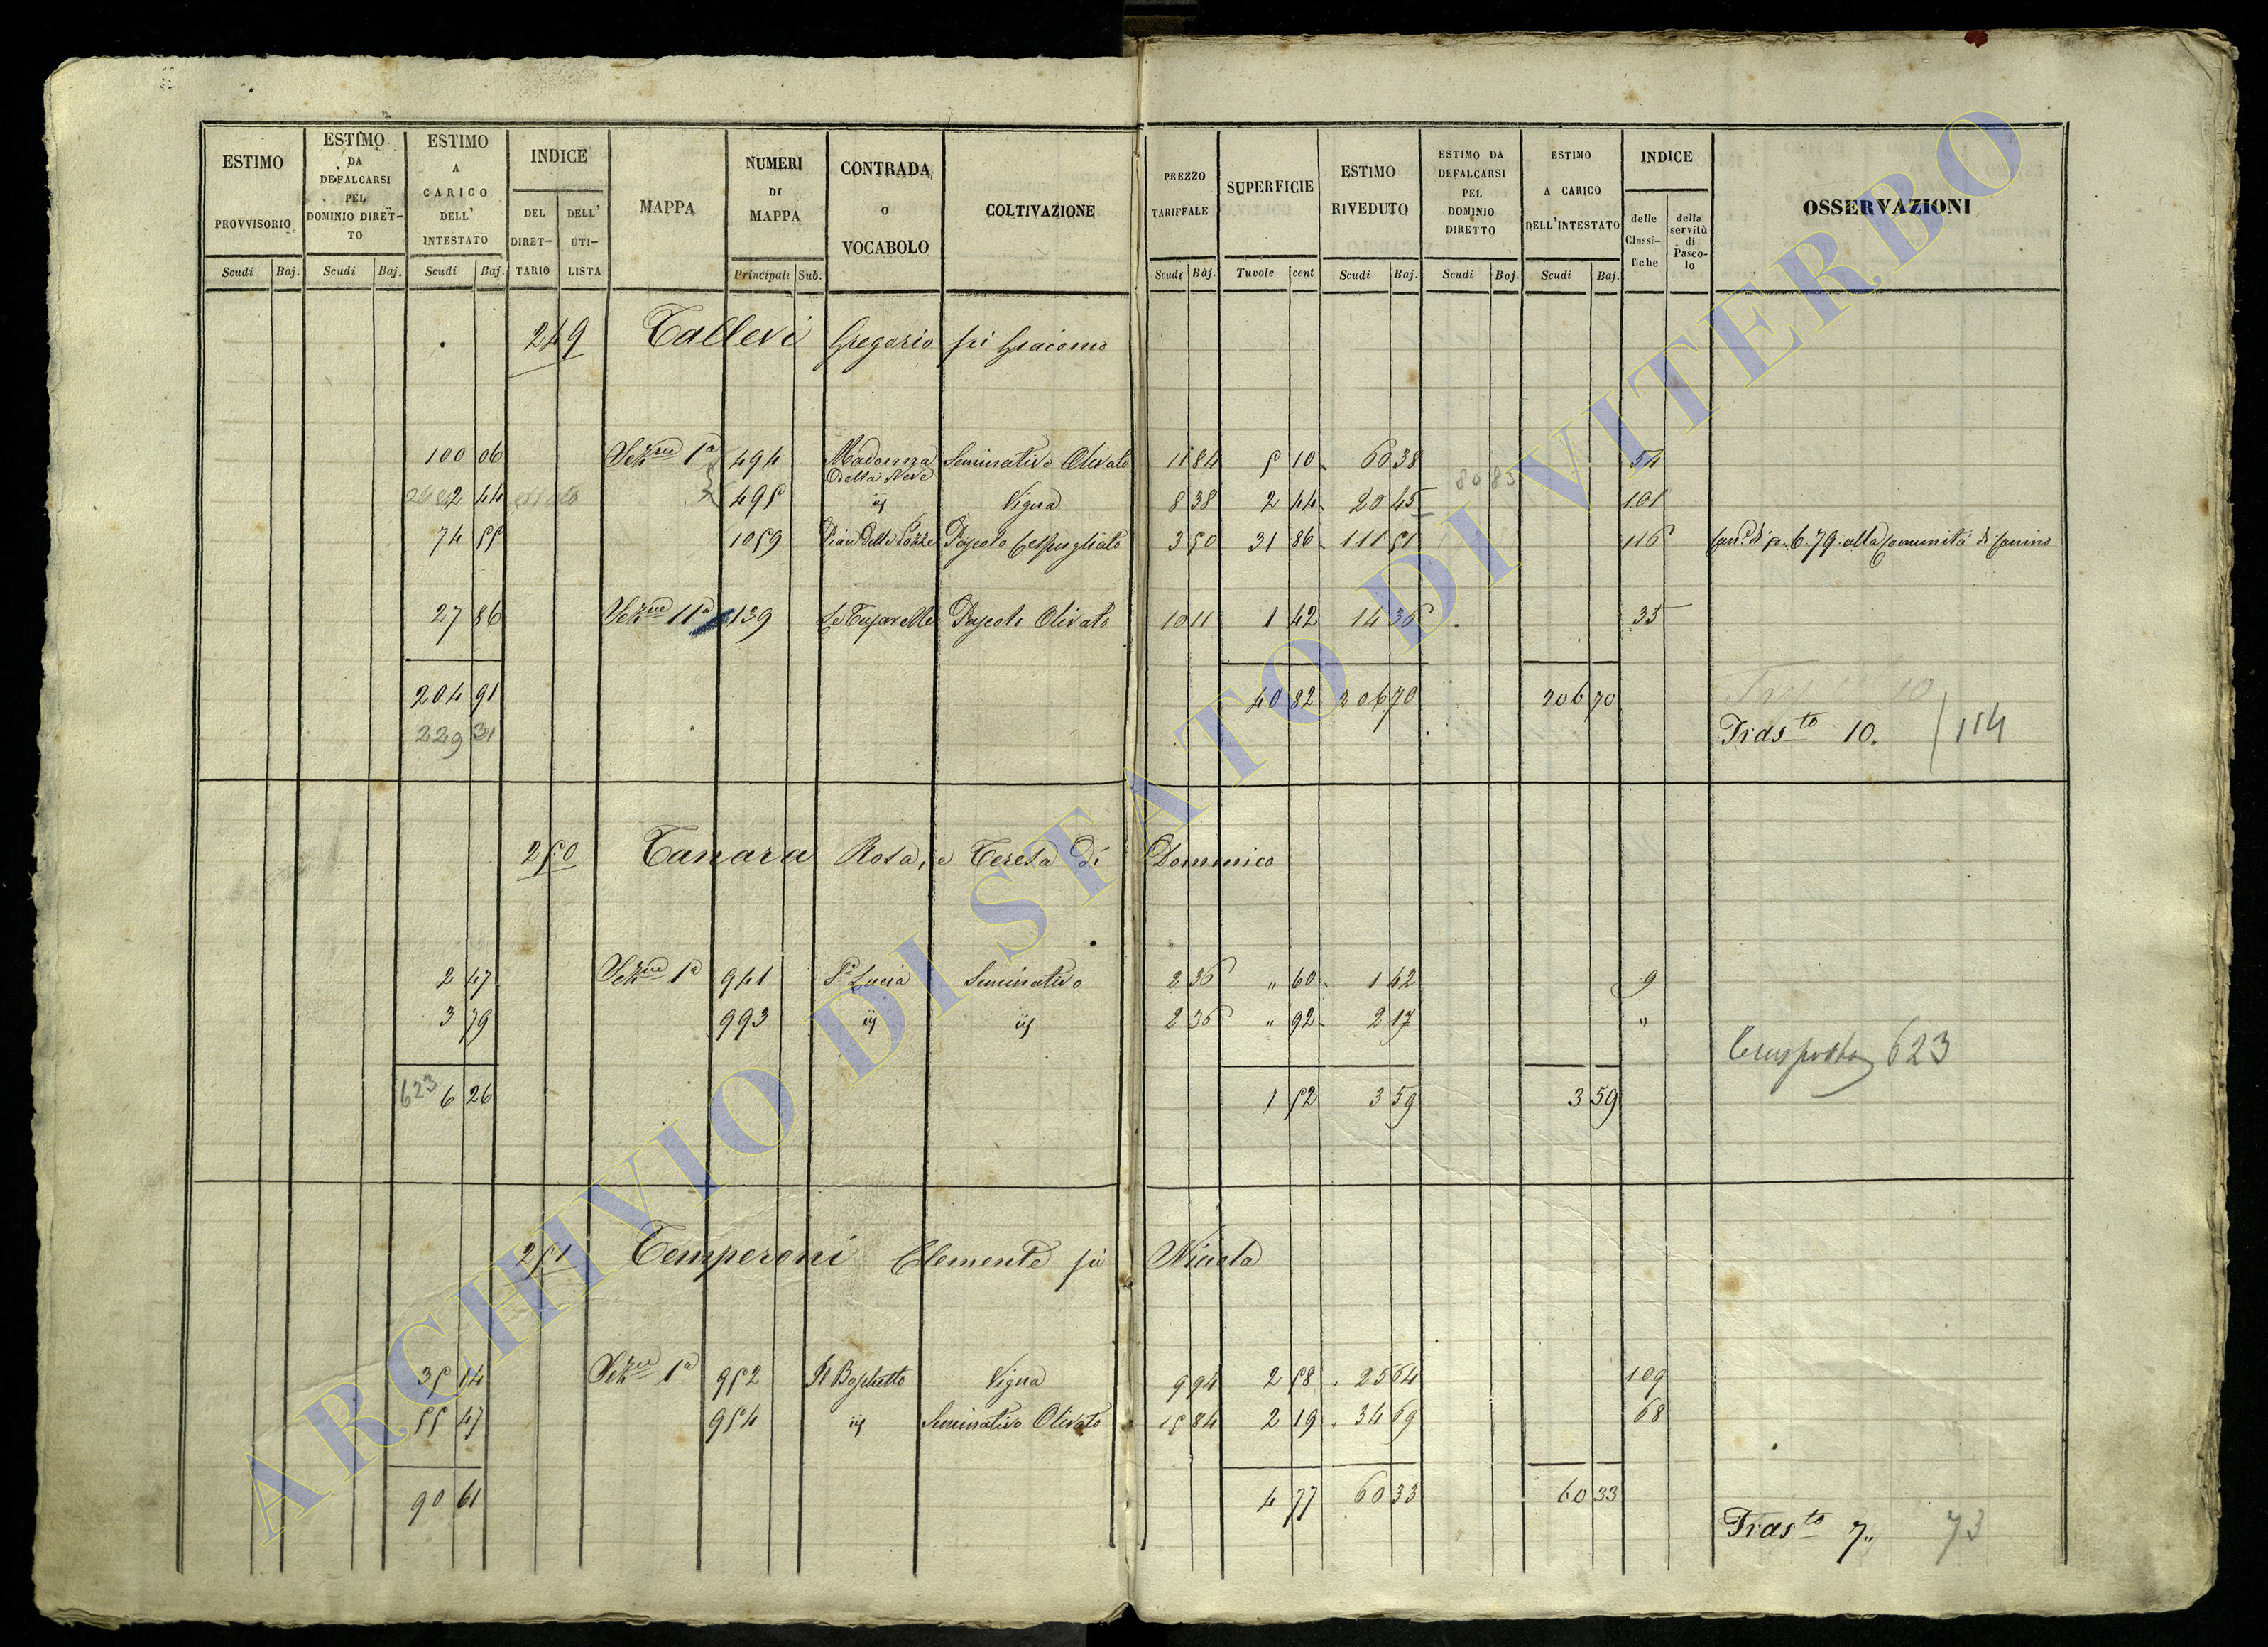 ESTIMO PROVVISORIO
ESTIMO DA DEFALCARSI PEL DOMINIO DIRETTO
ESTIMO A CARICO DELL' INTESTATO
INDICE
DEL DIRETTARIO
DELL' UTILISTA
MAPPA
NUMERI DI MAPPA
CONTRADA O VOCABOLO
COLTIVAZIONE
PREZZO TARIFFALE
SUPERFICIE
ESTIMO RIVEDUTO
ESTIMO DA DEFALCARSI PEL DOMINIO DIRETTO
ESTIMO A CARICO DELL'INTESTATO
INDICE
delle Classifiche
della servitù di Pascolo
OSSERVAZIONI
Scudi Baj. Scudi Baj. Scudi Baj. Principali Sub. Scudi Baj. Tavole cent Scudi Baj. Scudi Baj. Scudi Baj.
249 Tallevi Gregorio fù Giacomo
100 06 Sez.ne 1a 494 Madonna della Neve Seminativo Olivato 11 84 5 10 60 38 54
2 44 495 id Vigna 8 38 2 44 20 45 101
80 83
74 55 1059 Pian delle Pozze Pascolo Cespugliato 3 50 31 86 111 51 116 Can.e di p. 6.79 alla Comunità di Canino
27 86 Sez.ne 11a 139 Le Tufarelle Pascolo Olivato 10 11 1 42 14 36 35
204 91 40 82 206 70 206 70
229 31 Tras.to 10. 154
250 Tanara Rosa, e Teresa di Domenico
2 47 Sez.ne 1a 941 S.a Lucia Seminativo 2 36 " 60 1 42 9
3 79 993 id id 2 36 " 92 2 17 "
Trasporto 623
623 6 26 1 52 3 59 3 59
251 Temperoni Clemente fù Nicola
35 14 Sez.ne 1a 952 Il Boschetto Vigna 9 94 2 58 25 64 109
55 47 954 id Seminativo Olivato 15 84 2 19 34 69 68
90 61 4 77 60 33 60 33
Tras.to 7. 73
ARCHIVIO DI STATO DI VITERBO